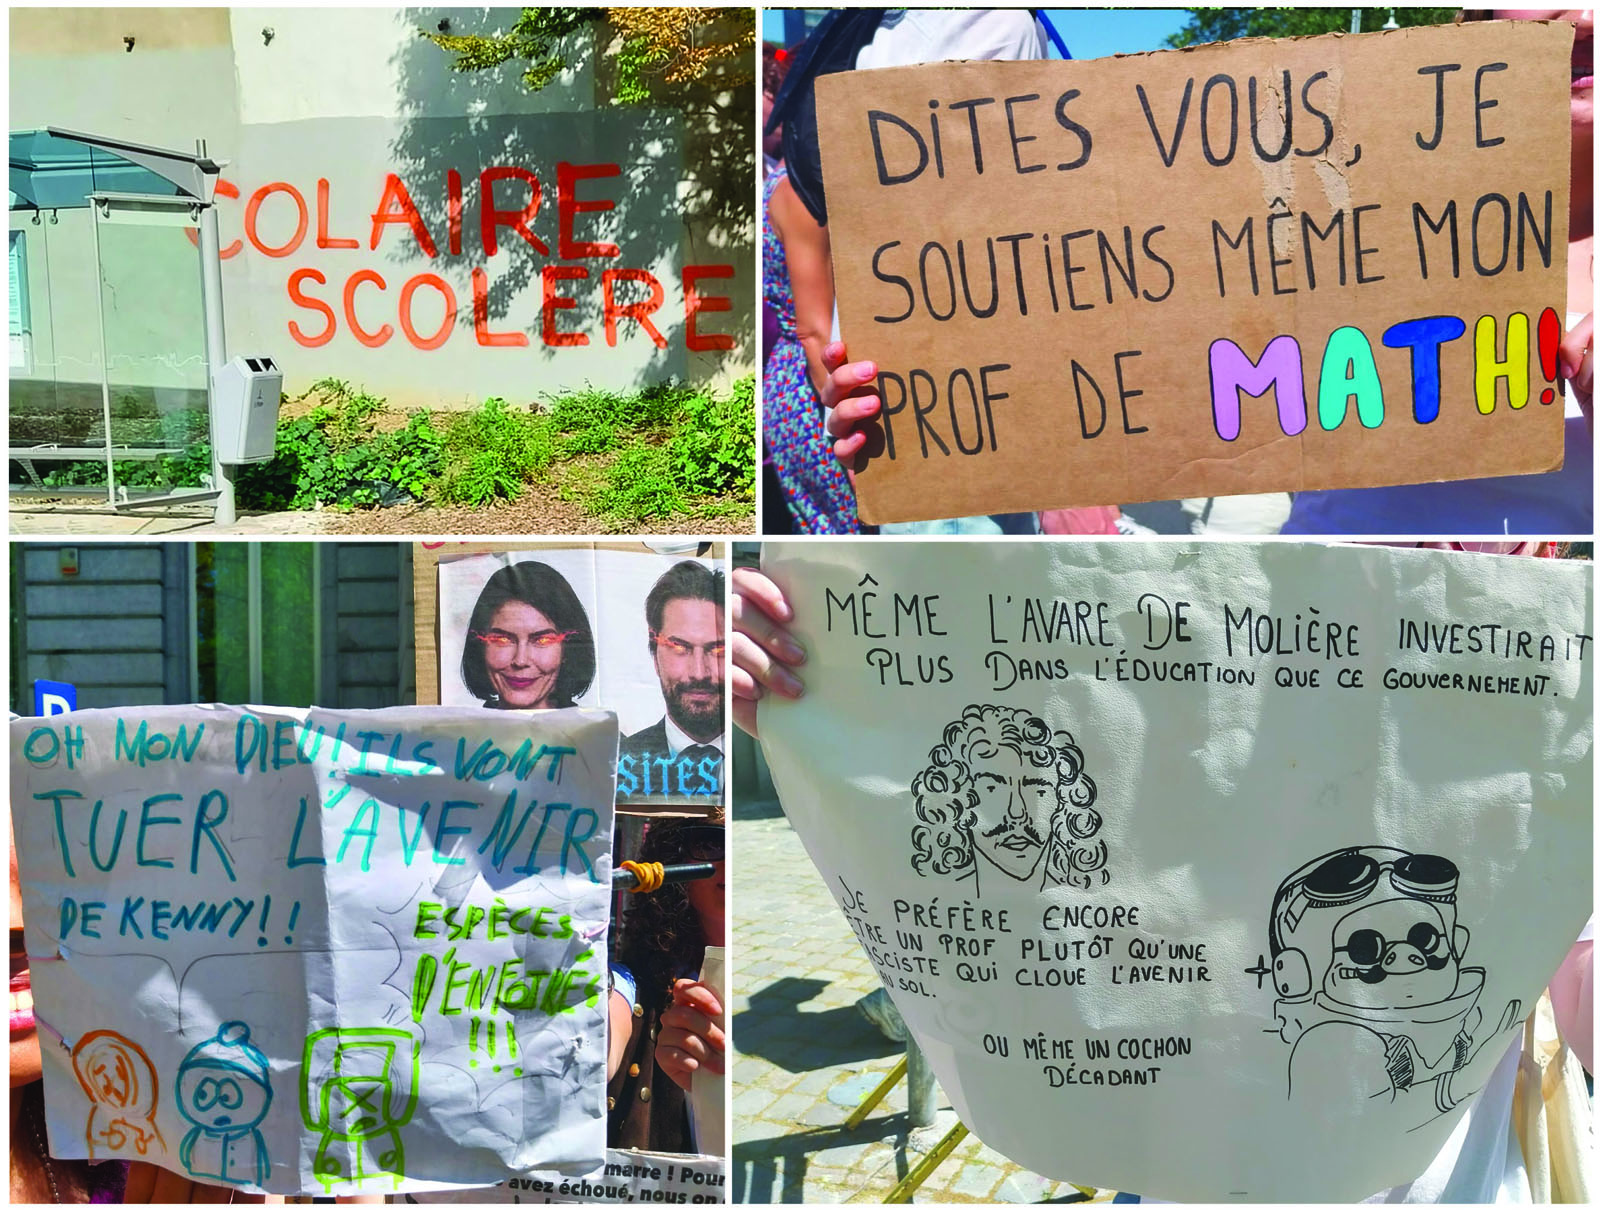 COLAIRE
SCOLÈRE
DITES VOUS, JE
SOUTIENS MÊME MON
PROF DE MATH!
OH MON DIEU! ILS VONT
TUER L'AVENIR
DE KENNY!!
ESPÈCES
D'ENFOIRÉS
!!!
SITES
marre ! Pour
avez échoué, nous on
MÊME L'AVARE DE MOLIÈRE INVESTIRAIT
PLUS DANS L'ÉDUCATION QUE CE GOUVERNEMENT.
JE PRÉFÈRE ENCORE
ÊTRE UN PROF PLUTÔT QU'UNE
FASCISTE QUI CLOUE L'AVENIR
AU SOL.
OU MÊME UN COCHON
DÉCADANT